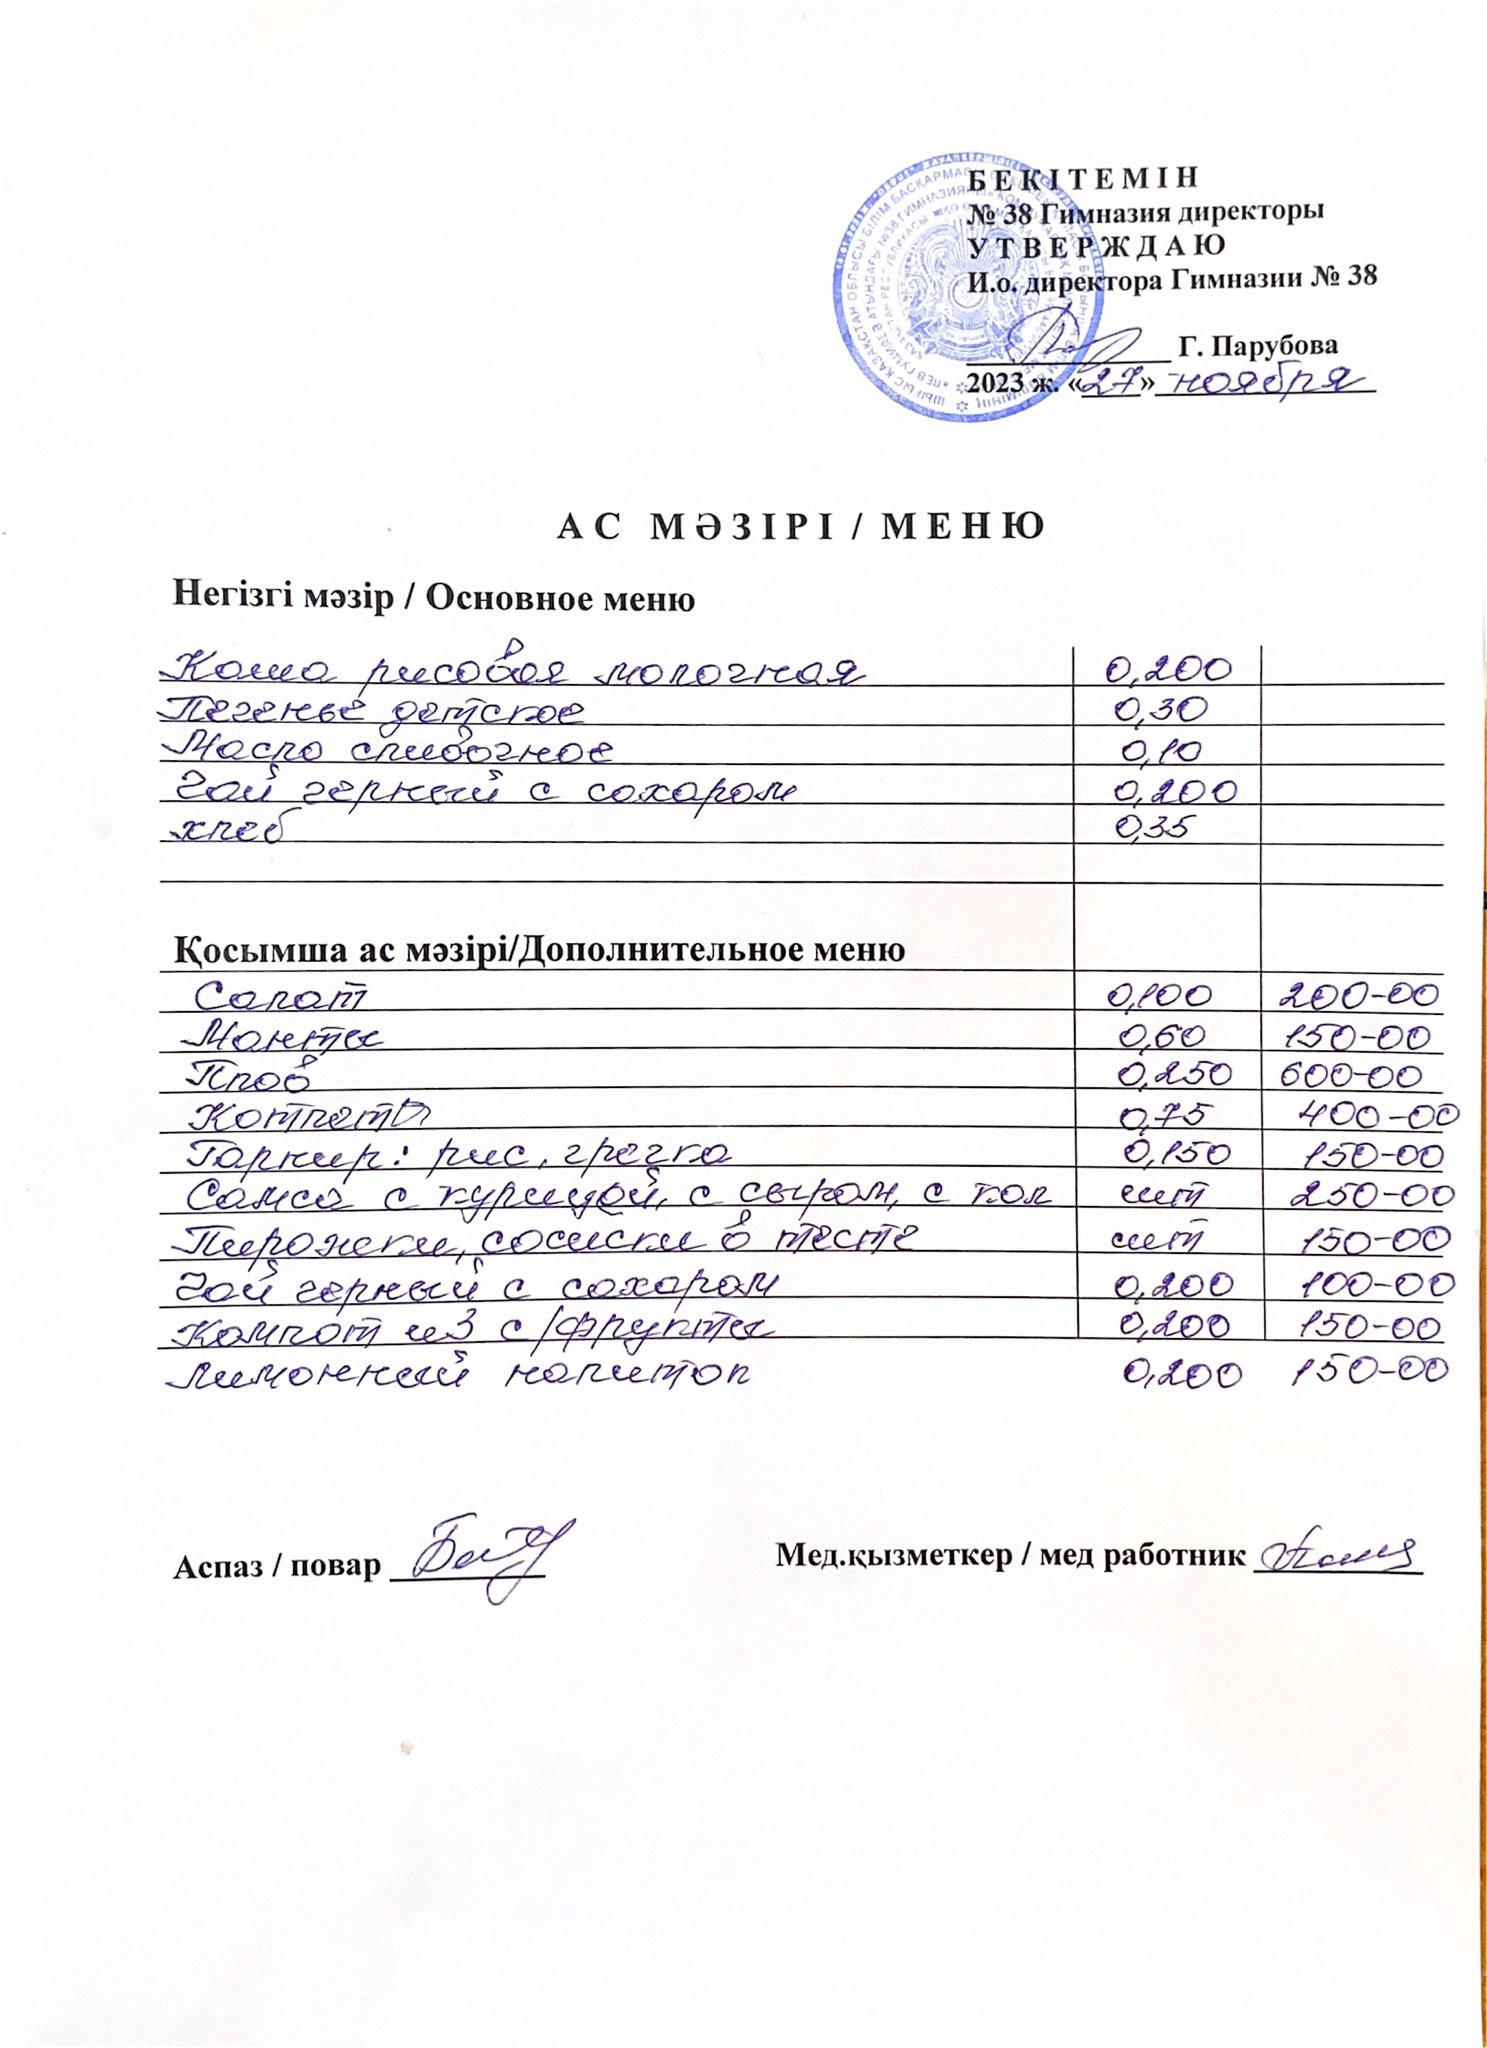 БЕКІТЕМІН
№ 38 Гимназия директоры
УТВЕРЖДАЮ
И.о. директора Гимназии № 38
Г. Парубова
2023 ж. «27» ноября
АС МӘЗІРІ / МЕНЮ
Негізгі мәзір / Основное меню
Каша рисовая молочная 0,200
Печенье детское 0,30
Масло сливочное 0,10
Чай черный с сахаром 0,200
хлеб 0,35
Қосымша ас мәзірі/Дополнительное меню
Салат 0,100 200-00
Манты 0,60 150-00
Плов 0,250 600-00
Котлеты 0,75 400-00
Гарнир: рис, гречка 0,150 150-00
Самса с курицей, с сыром, с кол шт 250-00
Пирожки, сосиски в тесте шт 150-00
Чай черный с сахаром 0,200 100-00
Компот из с/фрукты 0,200 150-00
Лимонный напиток 0,200 150-00
Аспаз / повар
Мед.қызметкер / мед работник